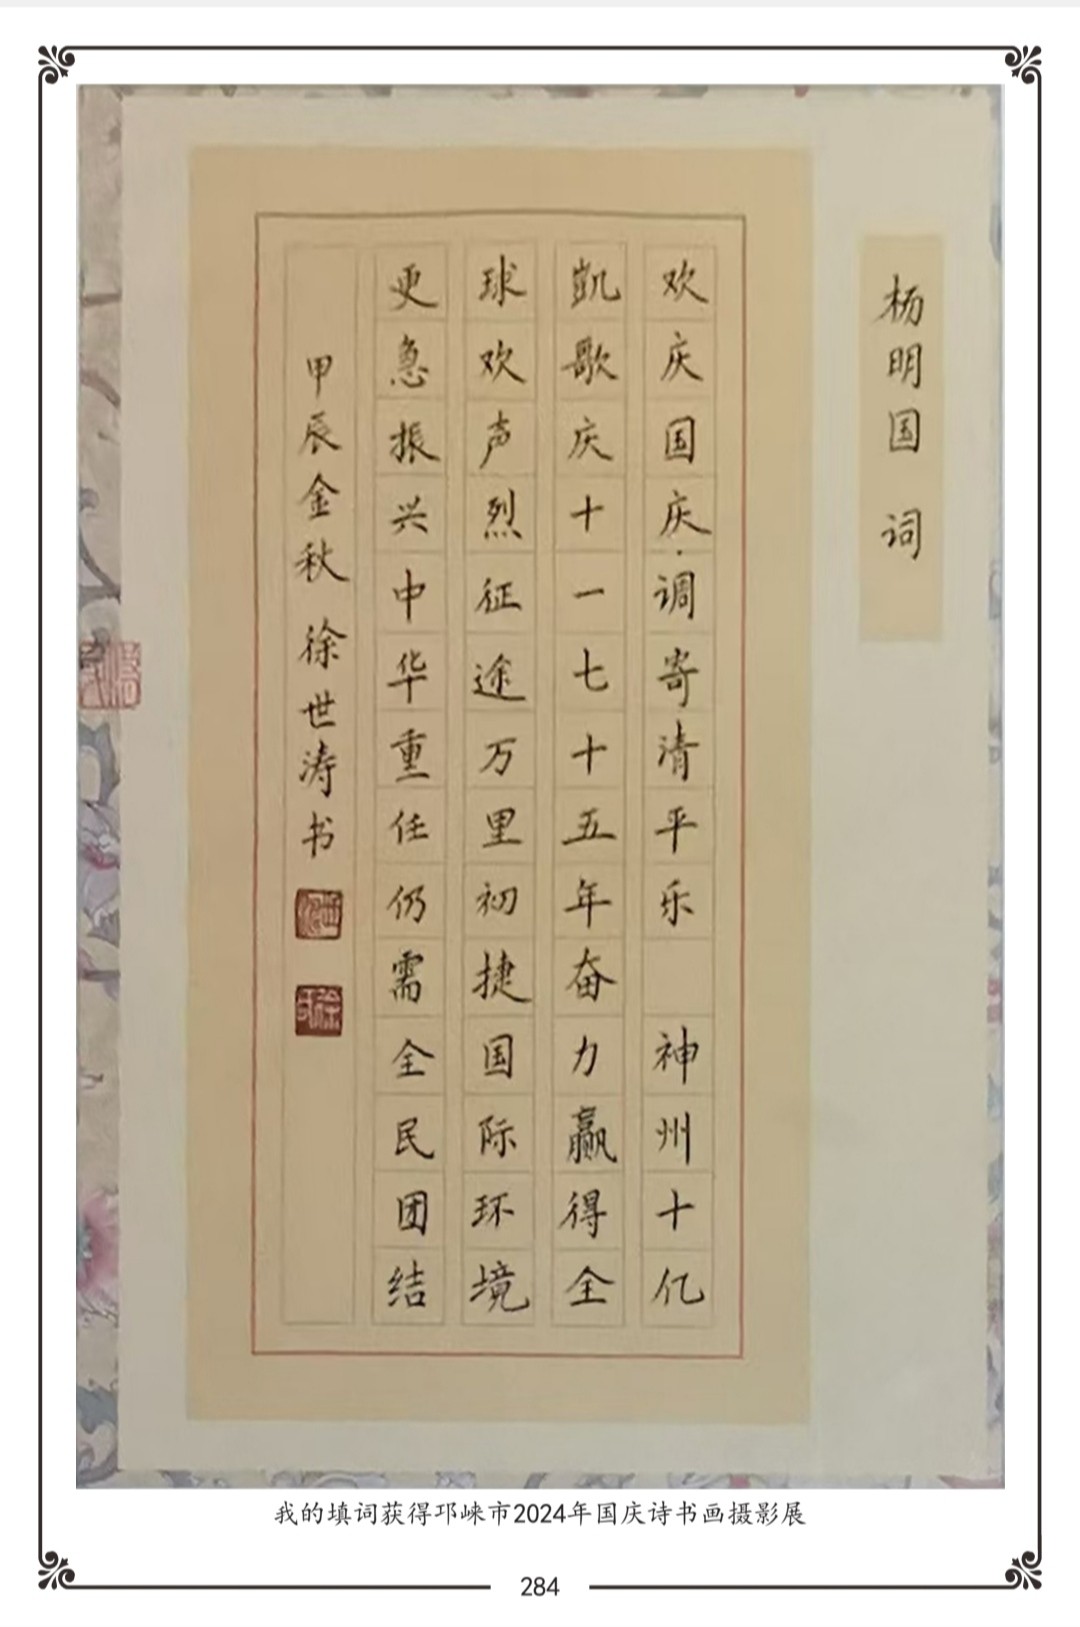 杨明国 词
欢庆国庆·调寄清平乐 神州十亿
凯歌庆十一七十五年奋力赢得全
球欢声烈征途万里初捷国际环境
更急振兴中华重任仍需全民团结
甲辰金秋 徐世涛书
我的填词获得邛崃市2024年国庆诗书画摄影展
284